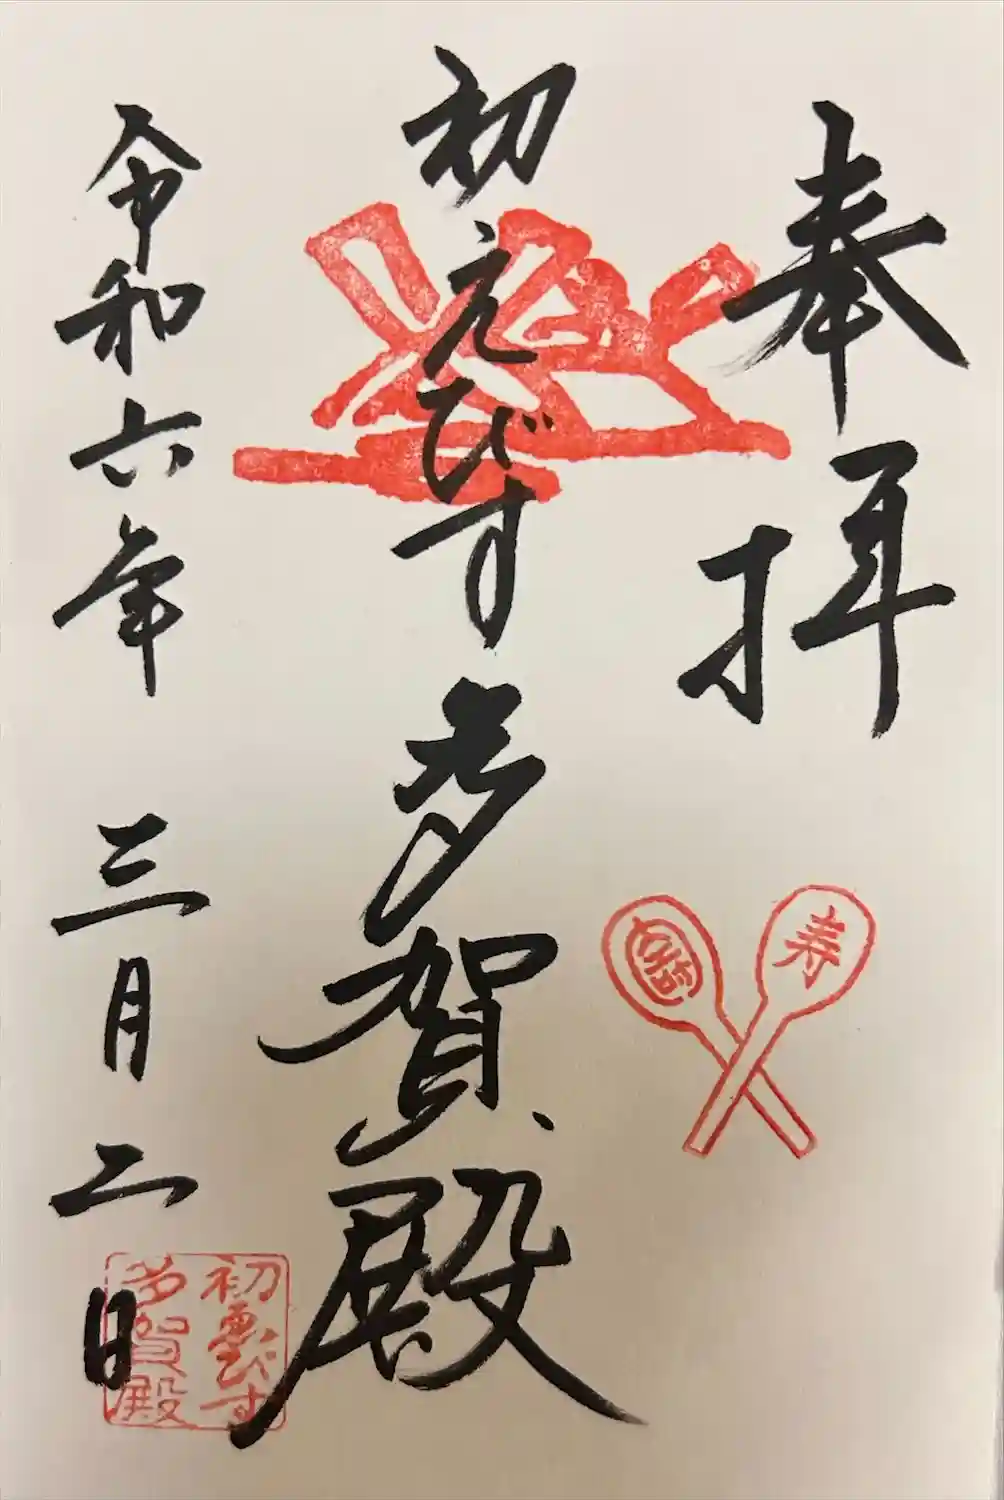 奉拝
寿
初えびす多賀殿
令和六年 三月二日
初恵びす
多賀殿